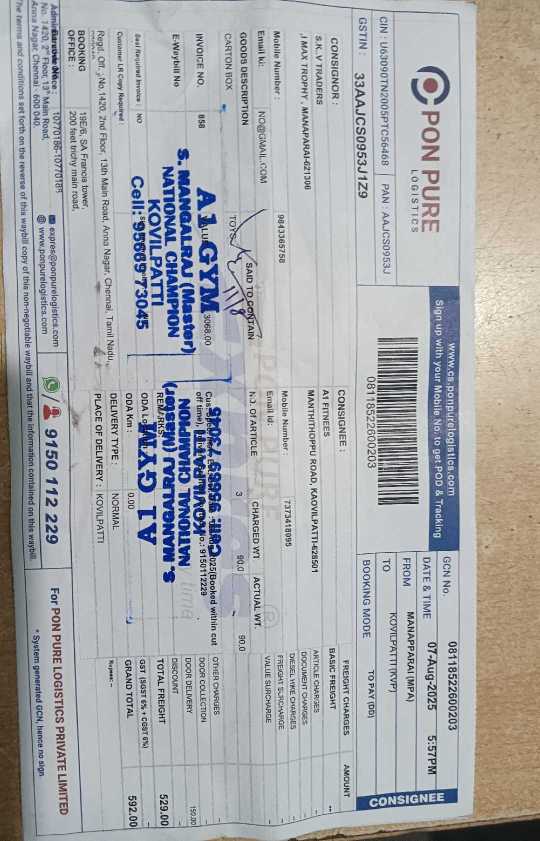 PON PURE
LOGISTICS
CIN : U63090TN2005PTC56468
PAN : AAJCS0953J
GSTIN :
33AAJCS0953J1Z9
www.cs.ponpurelogistics.com
Sign up with your Mobile No., to get POD & Tracking
08118522600203
GCN No.
08118522600203
DATE & TIME
07-Aug-2025 5:57PM
FROM
MANAPPARAI (MPA)
TO
KOVILPATTI (KVP)
BOOKING MODE
TO PAY (DD)
CONSIGNEE
CONSIGNOR :
S.K.V TRADERS
,I MAX TROPHY , MANAPARAI-621306
Mobile Number :
9843365758
Email id:
NO@GMAIL.COM
CONSIGNEE :
A1 FITNEES
MANTHITHOPPU ROAD, KAOVILPATTI-628501
Mobile Number :
7373418095
Email id:
GOODS DESCRIPTION
SAID TO CONTAIN
NO. OF ARTICLE
CHARGED WT
ACTUAL WT.
CARTON BOX
TOYS
3
90.0
90.0
INVOICE NO.
858
3068.00
E-Waybill No
Seal Required Invoice : NO
Customer LR Copy Required
A1 GYM
S. MANGALRAJ (Master)
NATIONAL CHAMPION
KOVILPATTI
Cell: 95669 73045
A1 GYM
S. MANGALRAJ (Master)
NATIONAL CHAMPION
KOVILPATTI
Cell: 95669 73045
2025(Booked within cut
off time),
No.: 9150112229
REMARKS
ODA
ODA KM :
0.00
DELIVERY TYPE :
NORMAL
PLACE OF DELIVERY :
KOVILPATTI
FREIGHT CHARGES
AMOUNT
BASIC FREIGHT
--
ARTICLE CHARGES
DOCUMENT CHARGES
DIESEL HIKE CHARGES
FREIGHT SURCHARGE
VALUE SURCHARGE
OTHER CHARGES
DOOR COLLECTION
DOOR DELIVERY
150.00
DISCOUNT
TOTAL FREIGHT
529.00
GST (SGST 6% + CGST 6%)
GRAND TOTAL
592.00
Rupees: --
Regd. Off. :No.1420, 2nd Floor, 13th Main Road, Anna Nagar, Chennai, Tamil Nadu ,
BOOKING
OFFICE :
19E/6, SA Francis tower,
200 feet trichy main road,
10770186-1077018
No. 1420, 2nd Floor, 13th Main Road,
Anna Nagar, Chennai - 600 040.
expres@ponpurelogistics.com
www.ponpurelogistics.com
9150 112 229
For PON PURE LOGISTICS PRIVATE LIMITED
* System generated GCN, hence no sign
The terms and conditions set forth on the reverse of this waybill copy of this non-negotiable waybill and that the information contained on this waybill